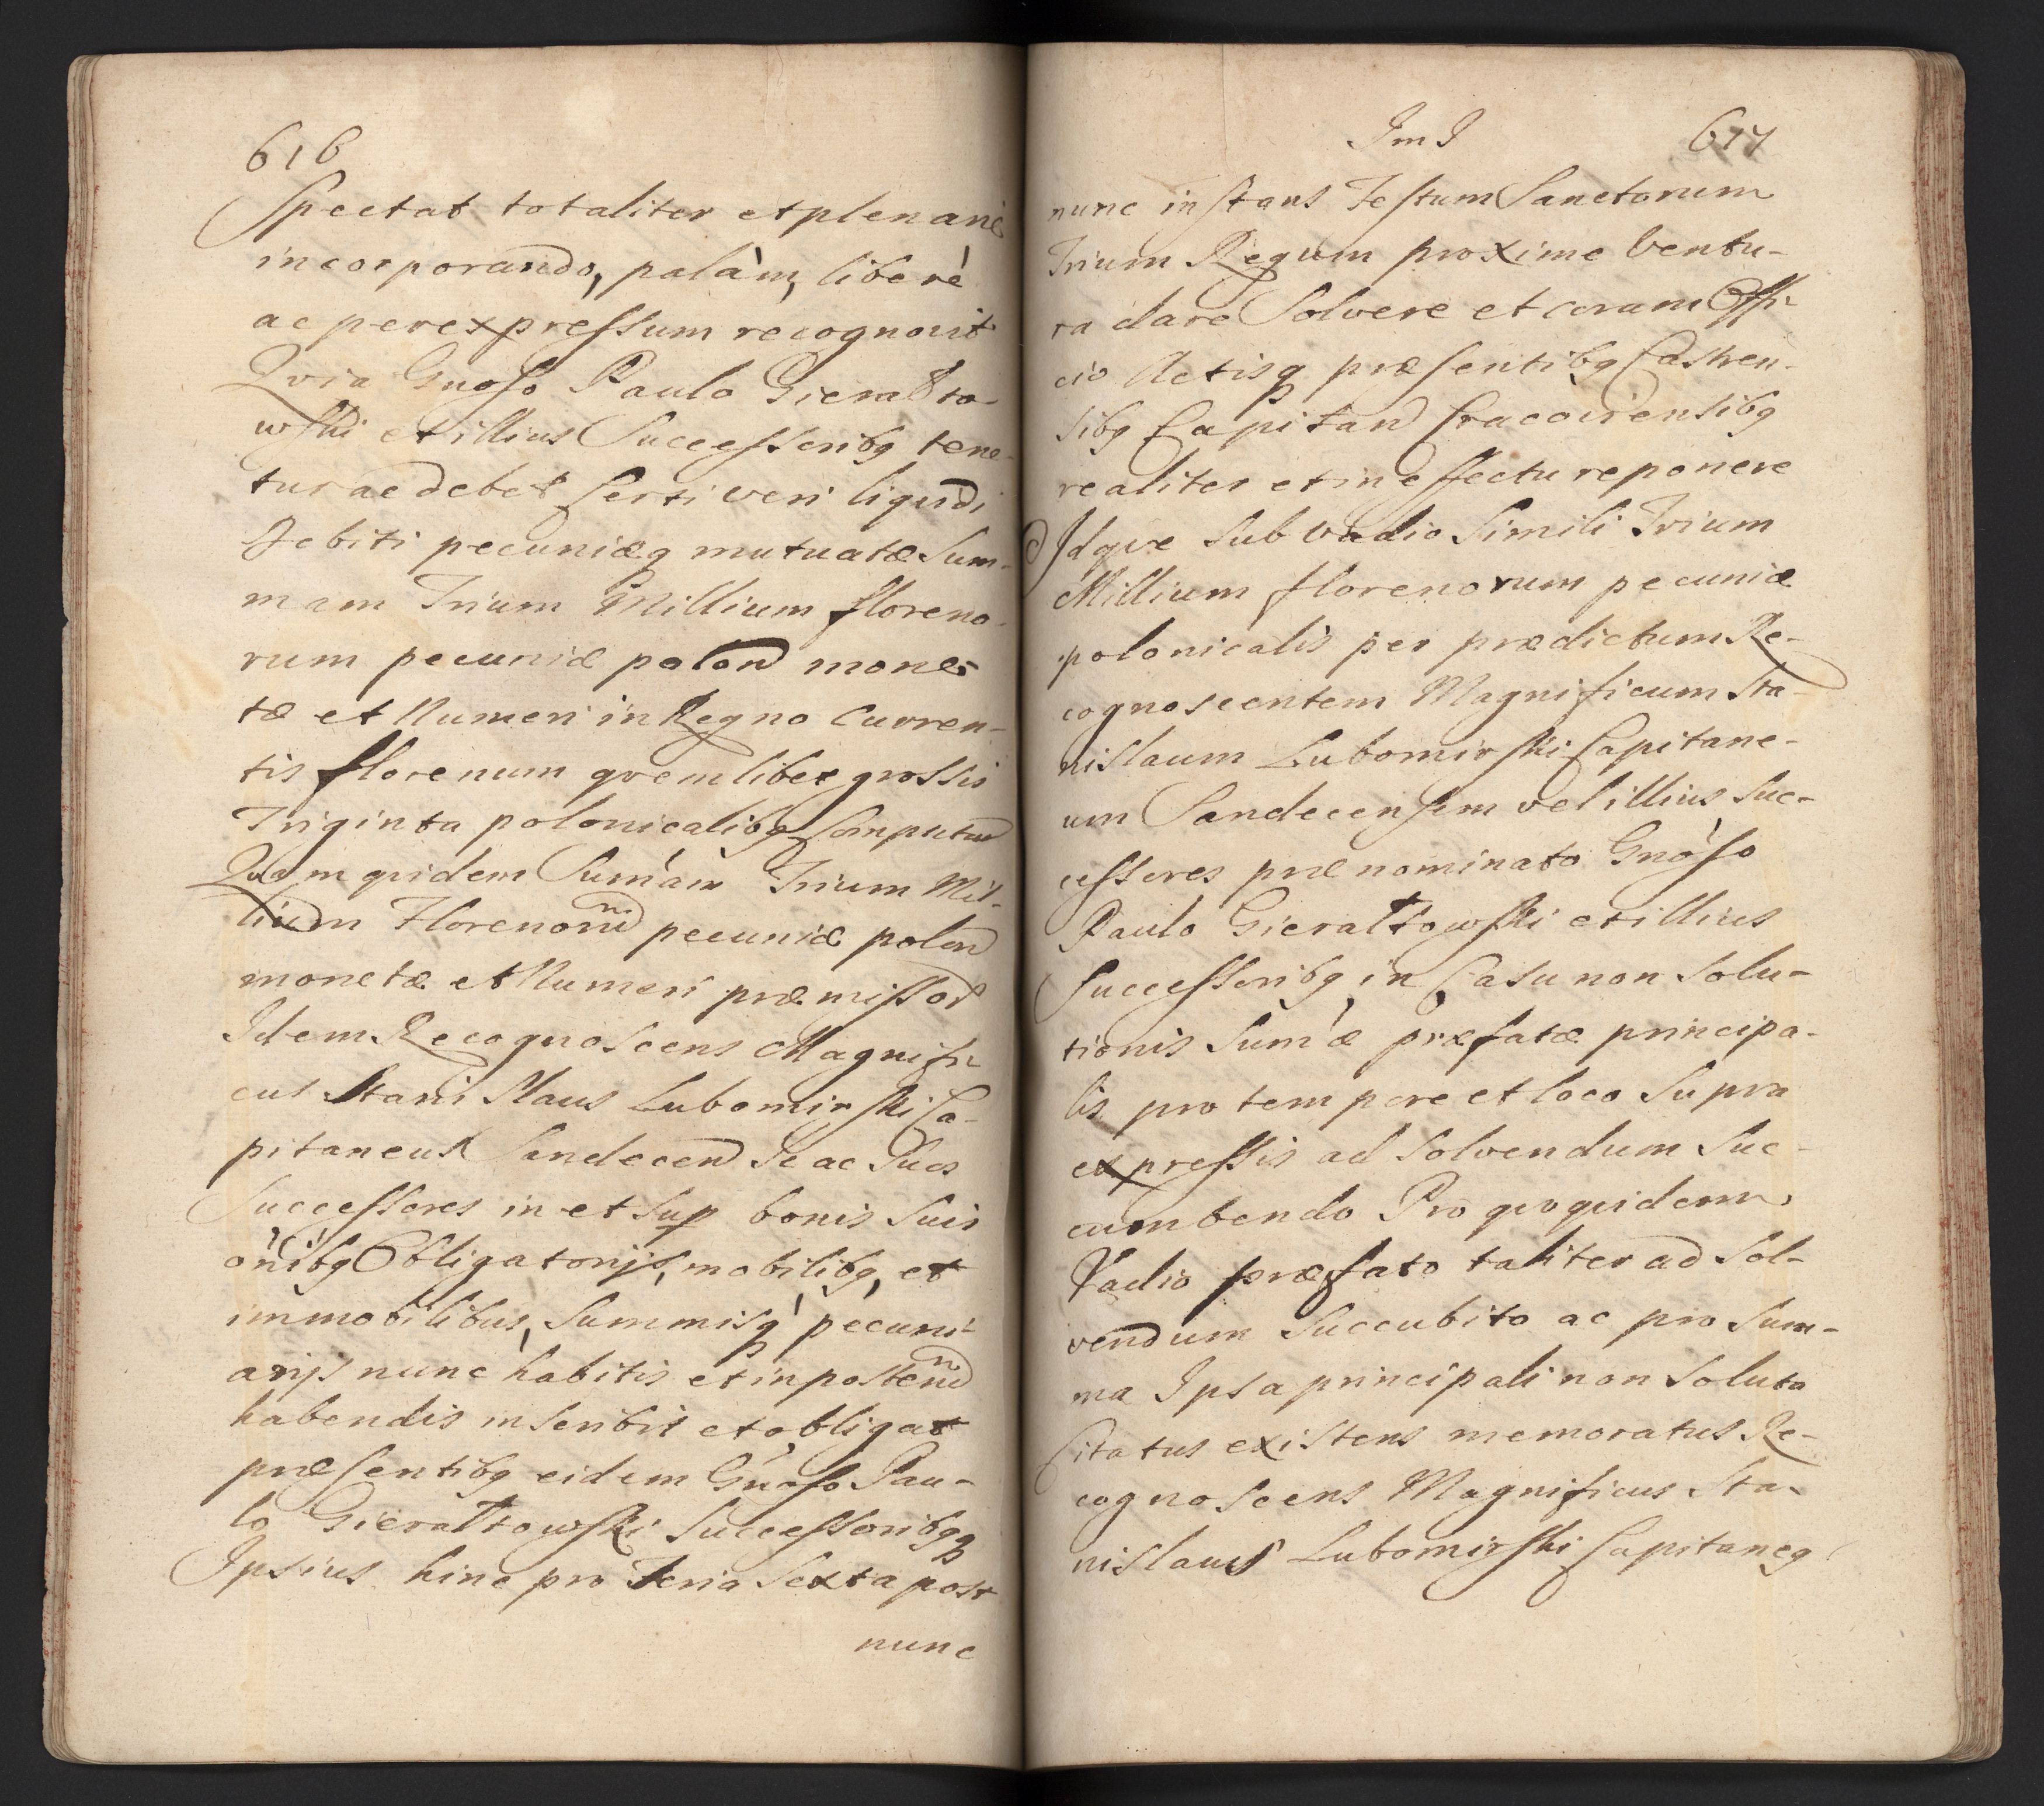 616
Spectat totaliter et plenarie
incorporando, palàm, liberè
ac per expressum recognovit
Qvia Gnoso Paulo Gieralto-
wski et illius Successoribq tene-
tur ac debet Certi veri liqvidi
Debiti pecuniæq mutuatæ Sum-
mam Trium Millium floreno-
rum pecuniæ polon mone-
tæ et Numeri in Regno Curren-
tis florenum qvemlibet grossis
Triginta polonicalibq Computan
Qvam qvidem Sum̃am Trium Mil-
lium Florenorn pecuniæ polon
monetæ et Numeri præmissor
Idem Recognoscens Magnifi-
cus Stanislaus Lubomirski Ca-
pitaneus Sandecen Se ac Suos
Successores in et sup bonis Suis
oñibq Obligatorijs, mobilibq, et
immobilibus, Summisq pecuni-
arijs nunc habitis et in postern
habendis inscribit et obligat
præsentibq eidem Gnoso Pau-
lo Gieraltowski Successoribqq
Ipsius hinc pro Feria Sexta post
nunc
ImI 617
nunc instans Festum Sanctorum
Trium Regum proxime Ventu-
ra dare Solvere et coram Offi-
cio Actisq præsentibq Castren-
sibq Capitan Cracoviensibq
realiter et in effectu reponere
Idqve Sub vadio Simili Trium
Millium florenorum pecuniæ
polonicalis per prædictum Re-
cognoscentem Magnificum Sta-
nislaum Lubomirski Capitane-
um Sandecensem vel illius Suc-
cessores prænominato Gnoso
Paulo Gieraltowski et illius
Successoribq in Casu non Solu-
tionis Sum̃æ præfatæ principa-
lis pro tempore et loco Supra
expressis ad Solvendum Suc-
cumbendo Pro qvoqvidem
Vadio præfato taliter ad Sol-
vendum Succubito ac pro Sum-
ma Ipsa principali non Soluta
Citatus existens memoratus Re-
cognoscens Magnificus Sta-
nislaus Lubomirski Capitaneq